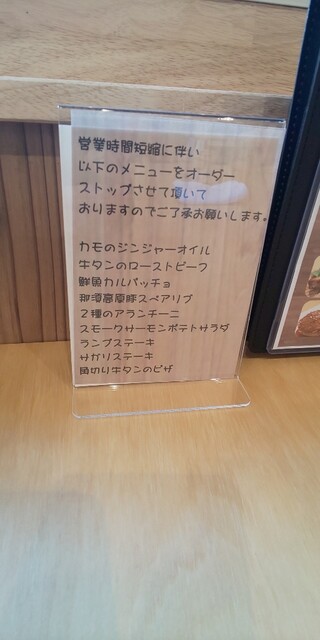 営業時間短縮に伴い
以下のメニューをオーダー
ストップさせて頂いて
おりますのでご了承お願いします。
カモのジンジャーオイル
牛タンのローストビーフ
鮮魚カルパッチョ
那須高原豚スペアリブ
2種のアランチーニ
スモークサーモンポテトサラダ
ランプステーキ
サガリステーキ
角切り牛タンのピザ